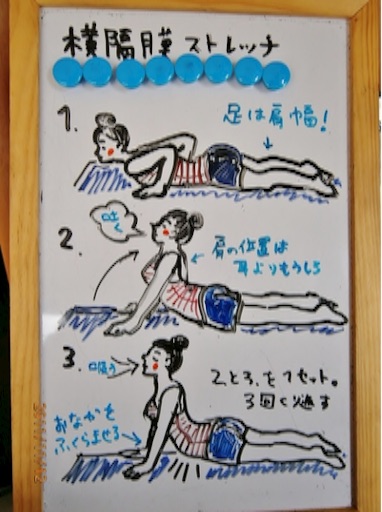 横隔膜ストレッチ
1.
足は肩幅!
2.
吐く
肩の位置は
耳よりもうしろ
3.
吸う
2.と3.を1セット。
3回くり返す
おなかを
ふくらませる